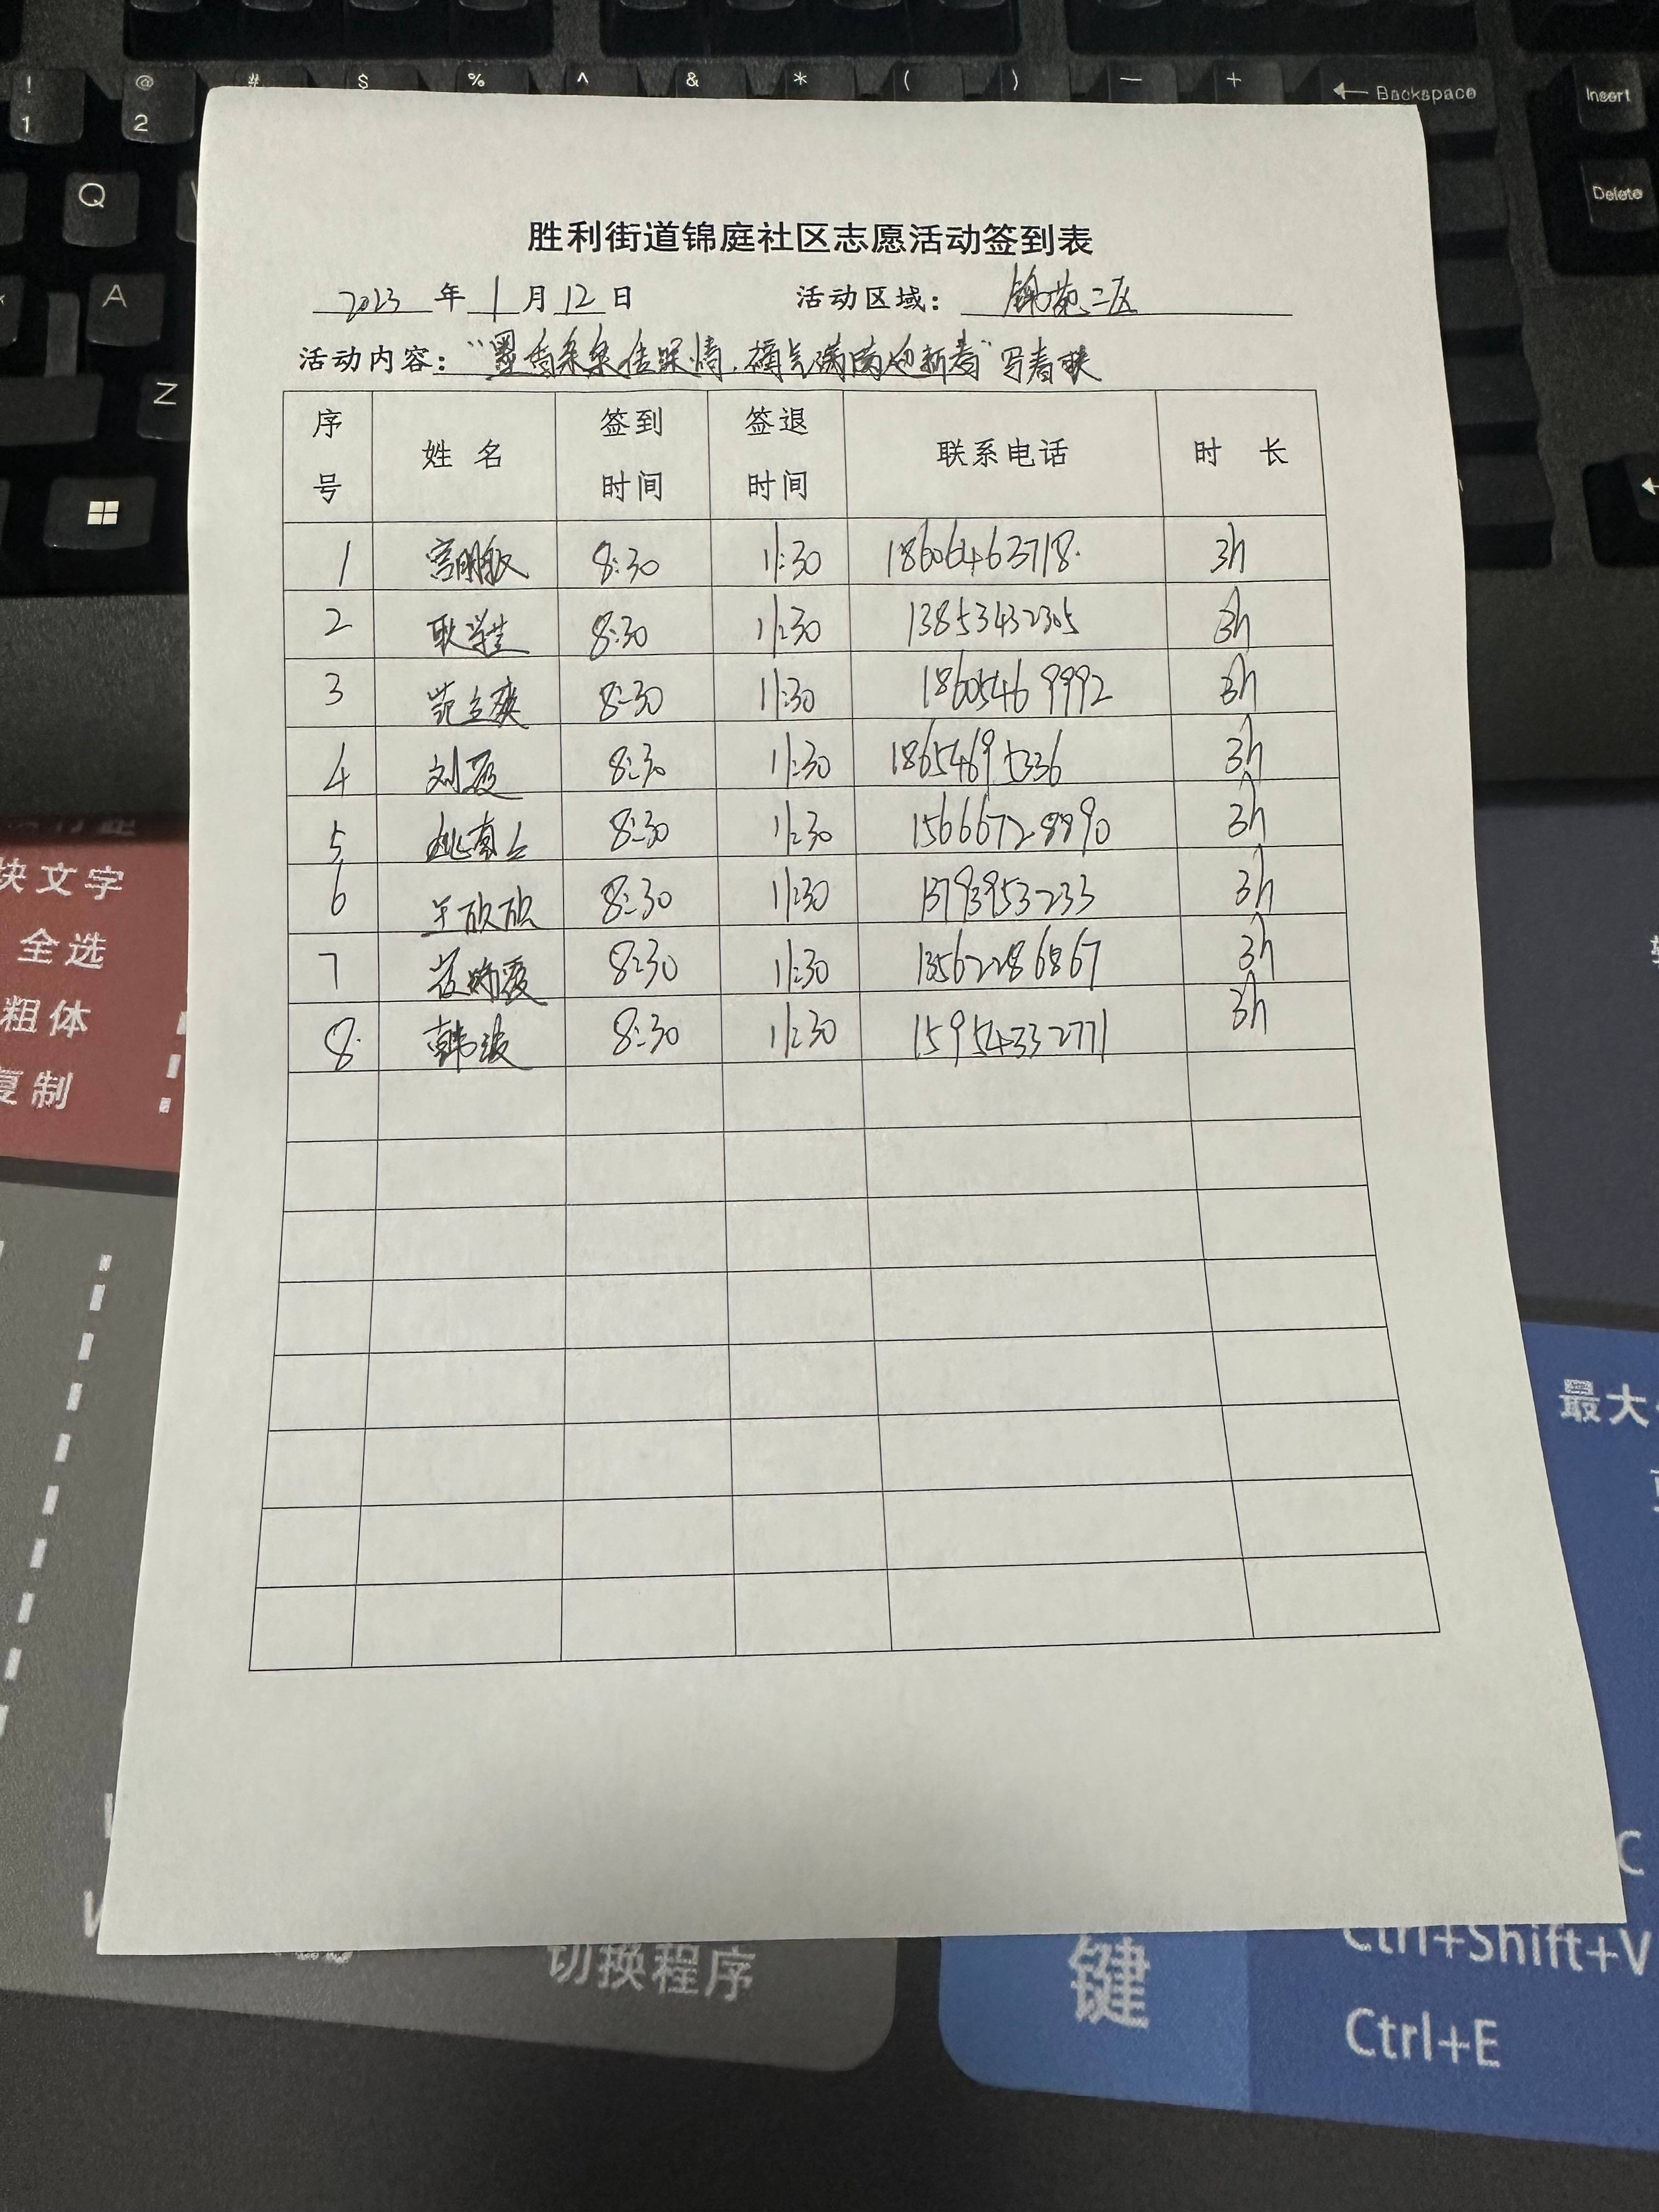 ! @ # $ % ^ & * ( ) — + ← Backspace Insert
1 2
Q Delete
A
Z
胜利街道锦庭社区志愿活动签到表
2023 年 1 月 12 日 活动区域： 锦苑二区
活动内容："墨香 情. 迎新春"写春联
序号 姓 名 签到时间 签退时间 联系电话 时 长
1 8:30 11:30 18606463718. 3h
2 8:30 11:30 13853432305 3h
3 范立爽 8:30 11:30 18605469992 3h
4 刘霞 8:30 11:30 18654695336 3h
5 8:30 11:30 15666728890 3h
6 王欣欣 8:30 11:30 13793953233 3h
7 8:30 11:30 13562286867 3h
8. 韩波 8:30 11:30 15954332771 3h
块文字
全选
粗体
复制
最大
切换程序
键
C
Ctrl+Shift+V
Ctrl+E